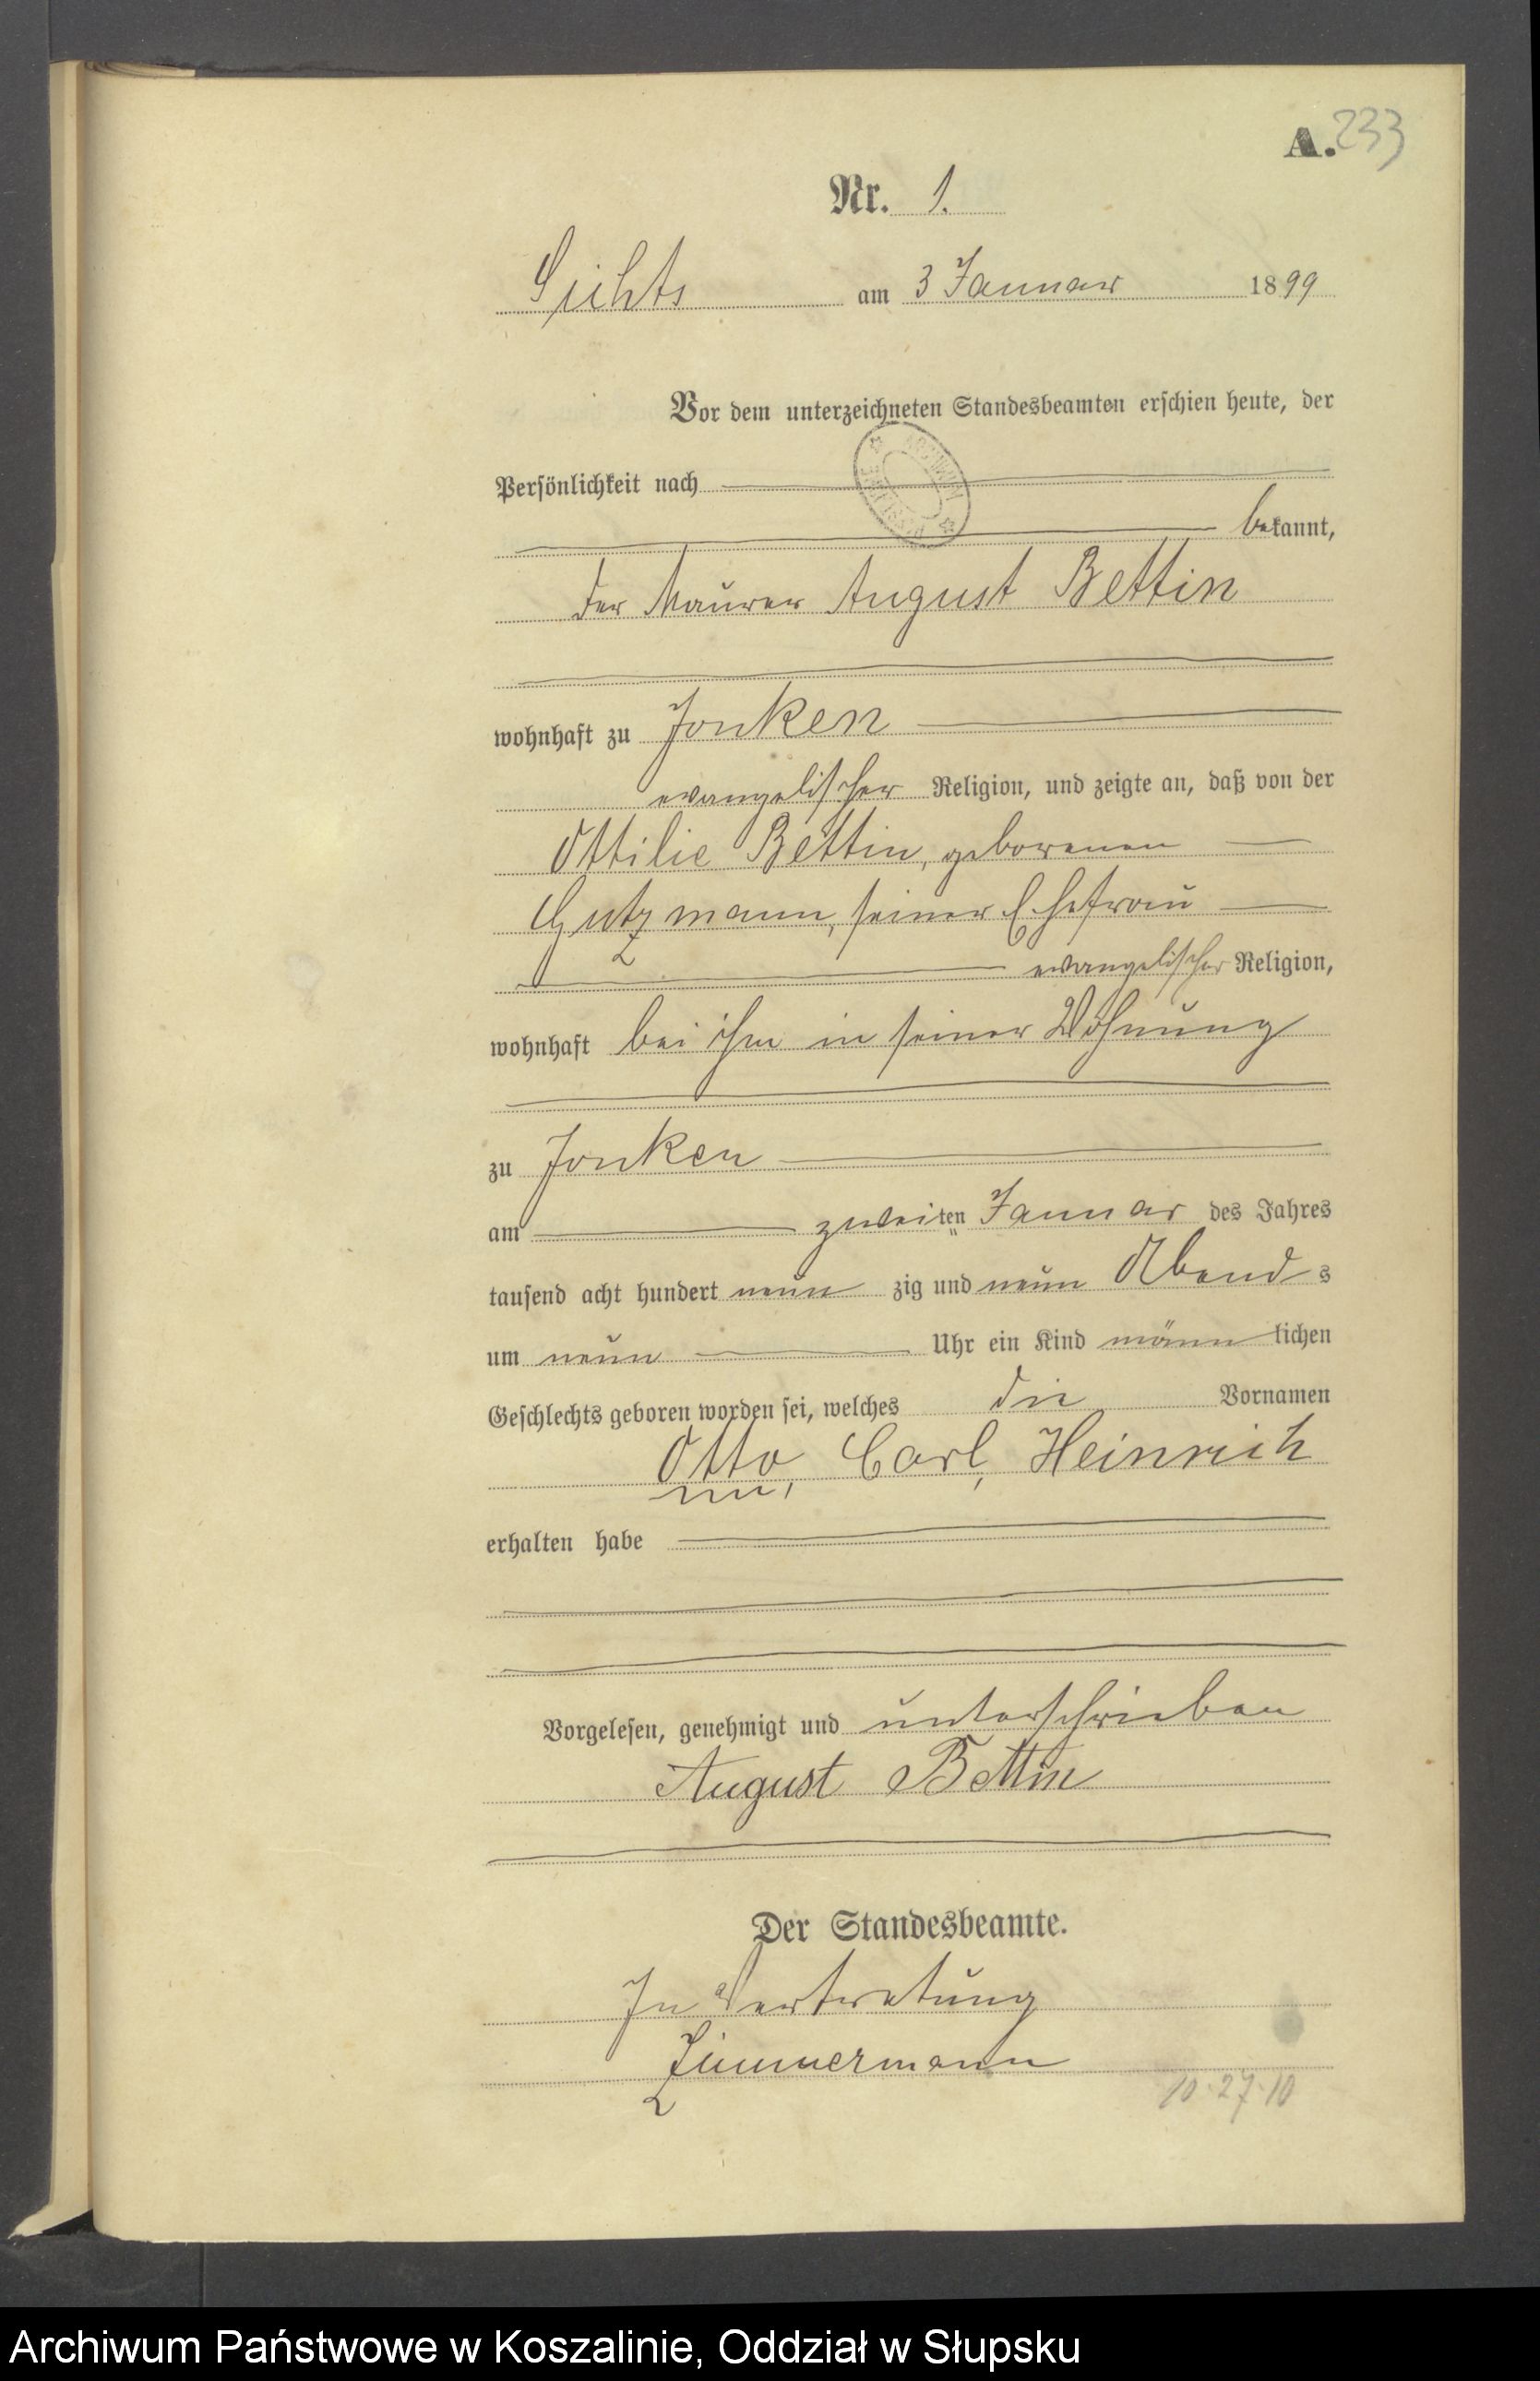 A. 233
Nr. 1.
am 3 Januar 1899
Vor dem unterzeichneten Standesbeamten erschien heute, der
Persönlichkeit nach
bekannt,
der Maurer August Bettin
wohnhaft zu Jonken
evangelischer Religion, und zeigte an, daß von der
Ottilie Bettin, geborenen
Gutzmann, seiner Ehefrau
evangelischer Religion,
wohnhaft bei ihm in seiner Wohnung
zu Jonken
am zweiten Januar des Jahres
tausend acht hundert neun zig und neun Abends
um neun Uhr ein Kind männlichen
Geschlechts geboren worden sei, welches die Vornamen
Otto, Carl, Heinrich
erhalten habe
Vorgelesen, genehmigt und unterschrieben
August Bettin
Der Standesbeamte.
In Vertretung
Zimmermann
10.27.10
Archiwum Państwowe w Koszalinie, Oddział w Słupsku